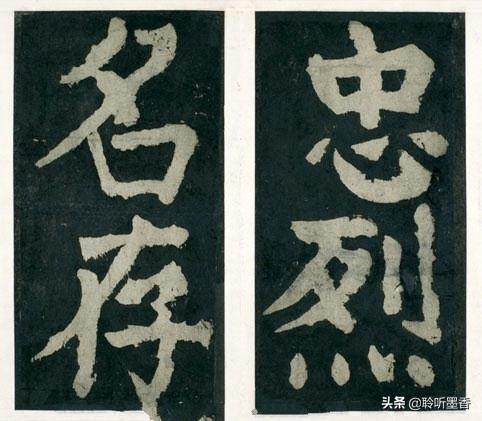 忠烈
名存
头条 @聆听墨香